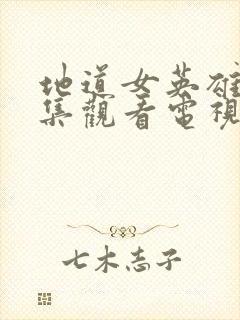 地道女英雄
集觀看電視
七木志子